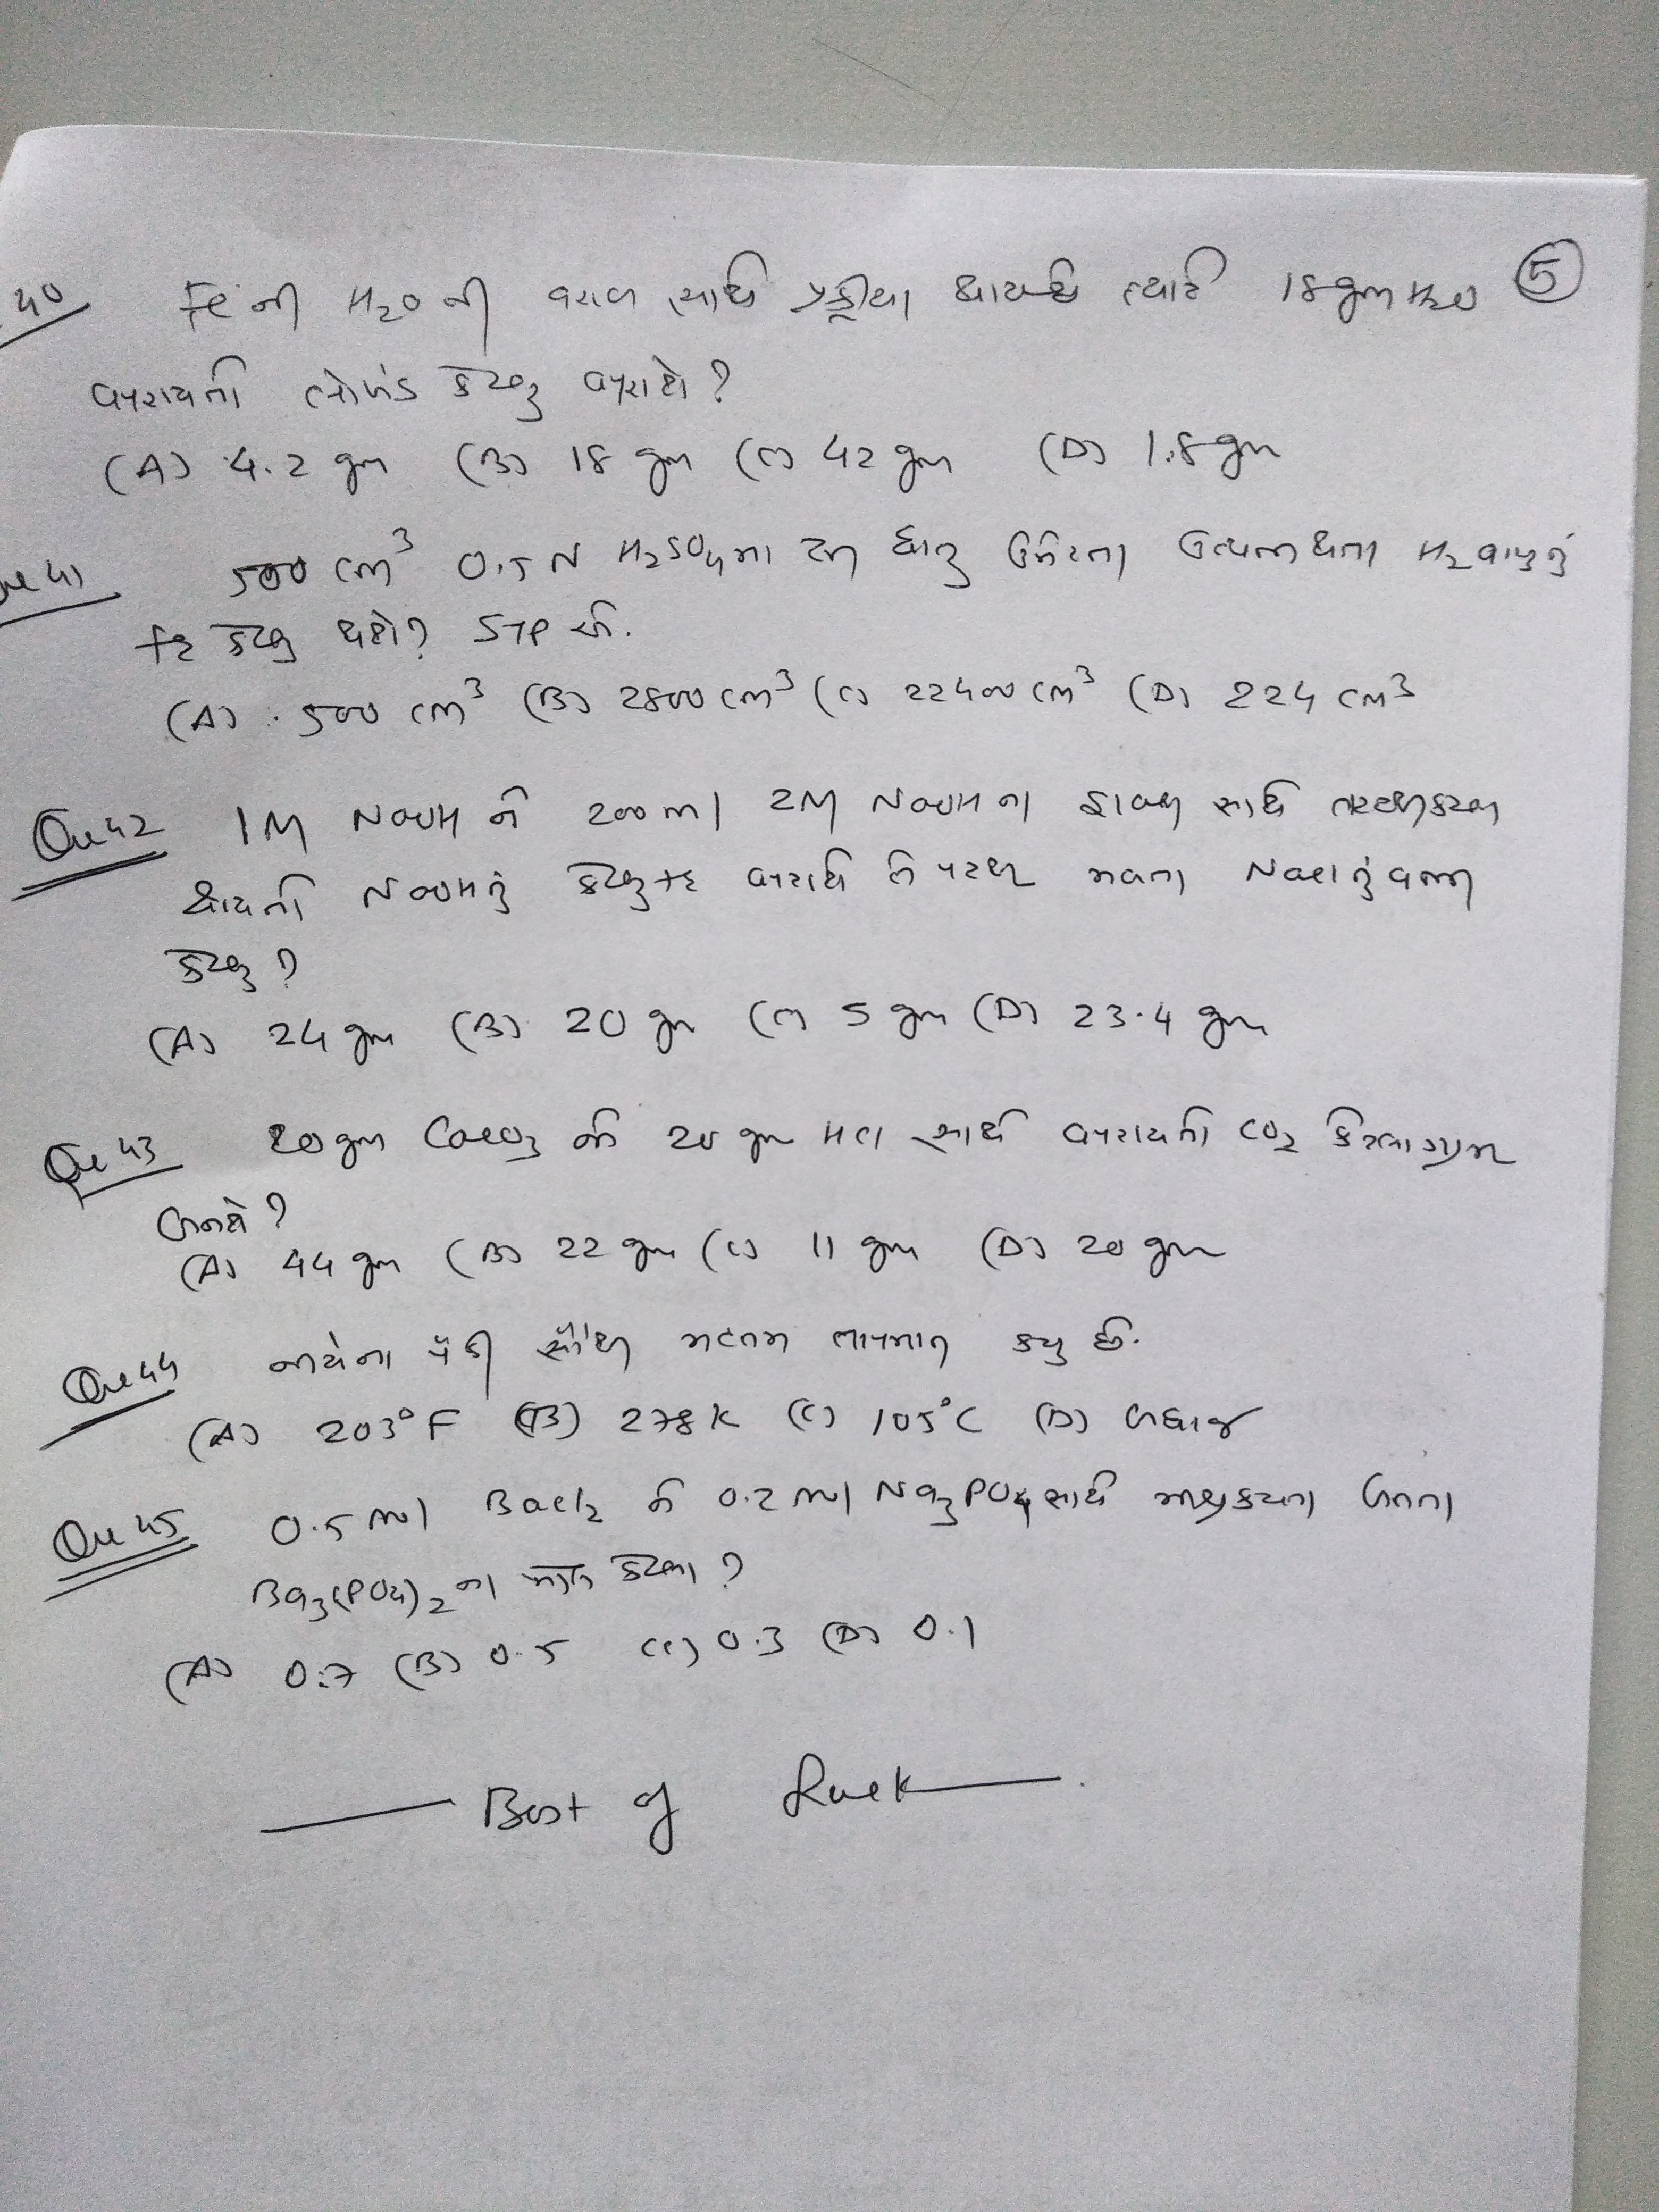 40 Fe ની H2O ની વરાળ સાથે પ્રક્રીયા થાય છે ત્યારે 18 gm H2O ⑤
વપરાયતો લોખંડ કેટલુ વપરાશે?
(A) 4.2 gm (B) 18 gm (C) 42 gm (D) 1.8 gm
Que 41 500 cm³ 0.5 N H2SO4 મા ધાતુ ઉમેરતા ઉત્પન્ન થતા H2 વાયુનું
કદ કેટલુ થશે? STP એ.
(A) 500 cm³ (B) 2800 cm³ (C) 22400 cm³ (D) 224 cm³
Que 42 1M NaOH ને 200 ml 2M NaOH ના દ્રાવણ સાથે
થાય તો NaOH નું કેટલુ કદ વપરાશે NaCl નું વજન
કેટલુ?
(A) 24 gm (B) 20 gm (C) 5 gm (D) 23.4 gm
Que 43 20 gm CaCO3 ને 20 gm HCl સાથે વપરાય તો CO2 કેટલા ગ્રામ
બનશે?
(A) 44 gm (B) 22 gm (C) 11 gm (D) 20 gm
Que 44 નીચેના પૈકી સૌથી મહતમ તાપમાન કયુ છે.
(A) 203°F (B) 278 K (C) 105°C (D) બધાજ
Que 45 0.5 mol BaCl2 ને 0.2 mol Na3PO4 સાથે મિશ્ર કરતા બનતા
Ba3(PO4)2 ના મોલ કેટલા?
(A) 0.7 (B) 0.5 (C) 0.3 (D) 0.1
Best of Luck